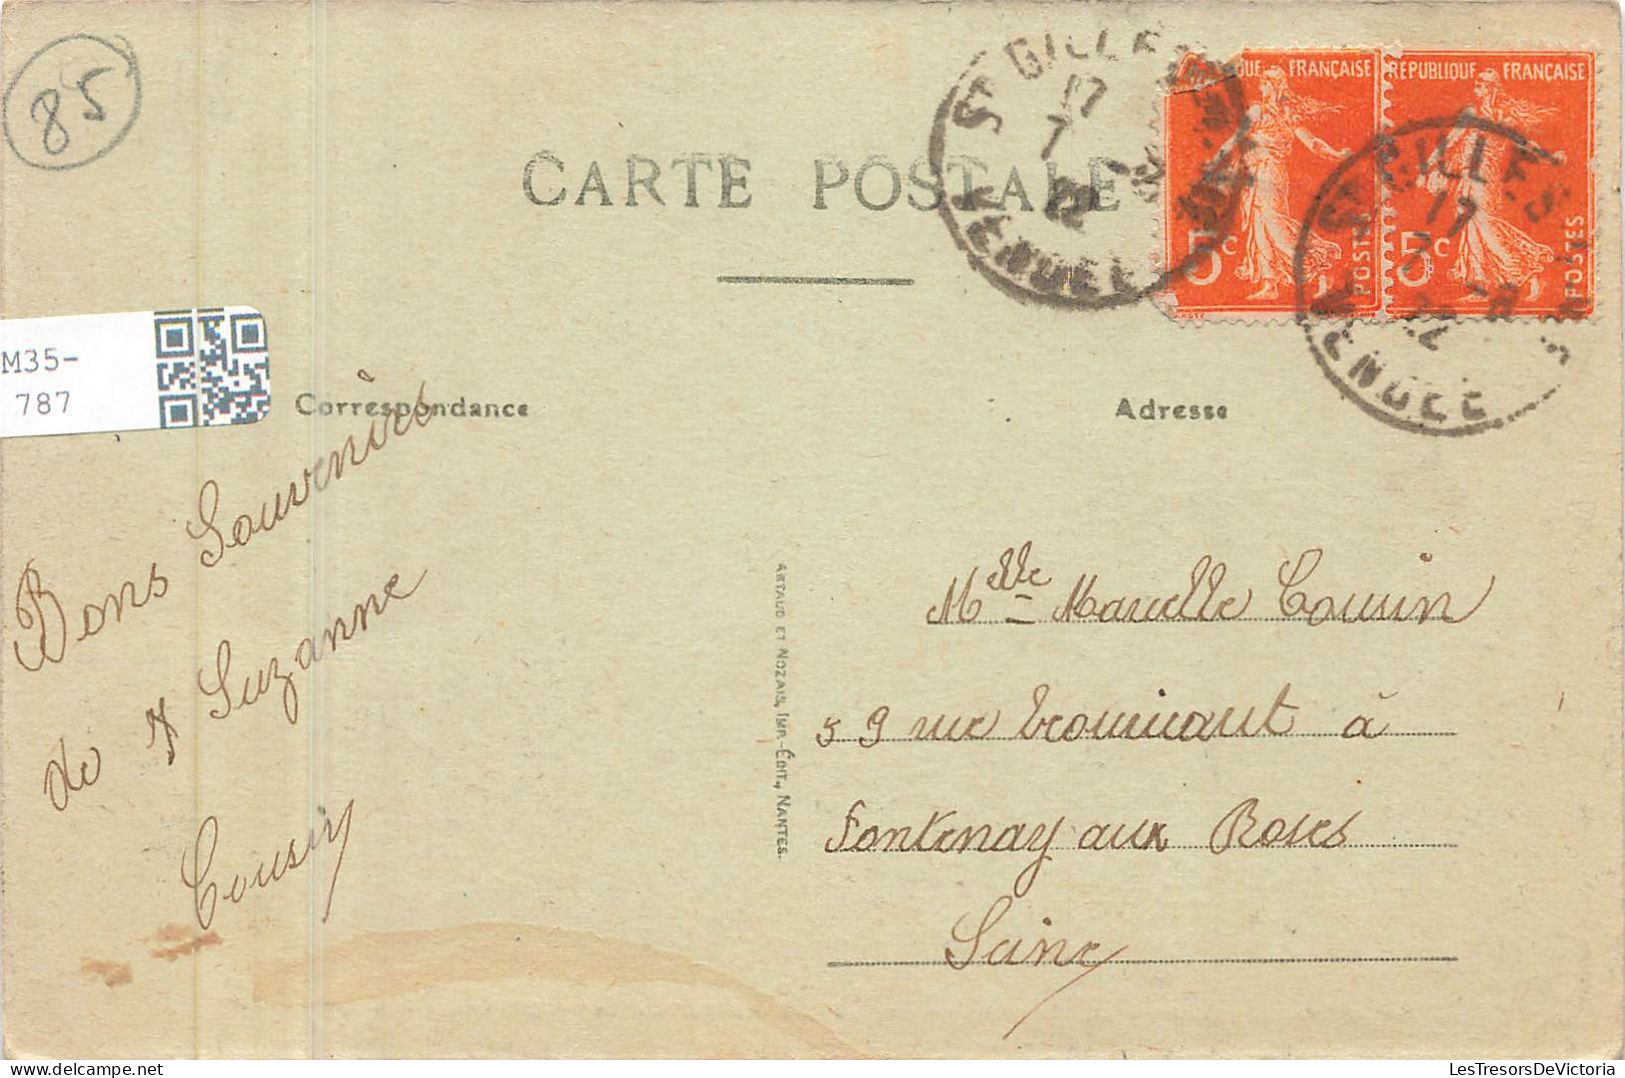 85
CARTE POSTALE
ST GILLES
17
7
22
VENDEE
RÉPUBLIQUE FRANÇAISE
5c
POSTES
QUE FRANÇAISE
5c
POSTES
ST GILLES
17
7
22
VENDEE
M35-
787
Correspondance
Adresse
Bons Souvenirs
de Suzanne
Cousin
ARTAUD ET NOZAIS, IMP.-ÉDIT., NANTES.
Melle Marcelle Cousin
59 rue à
Fontenay aux Roses
Seine
LesTresorsDeVictoria